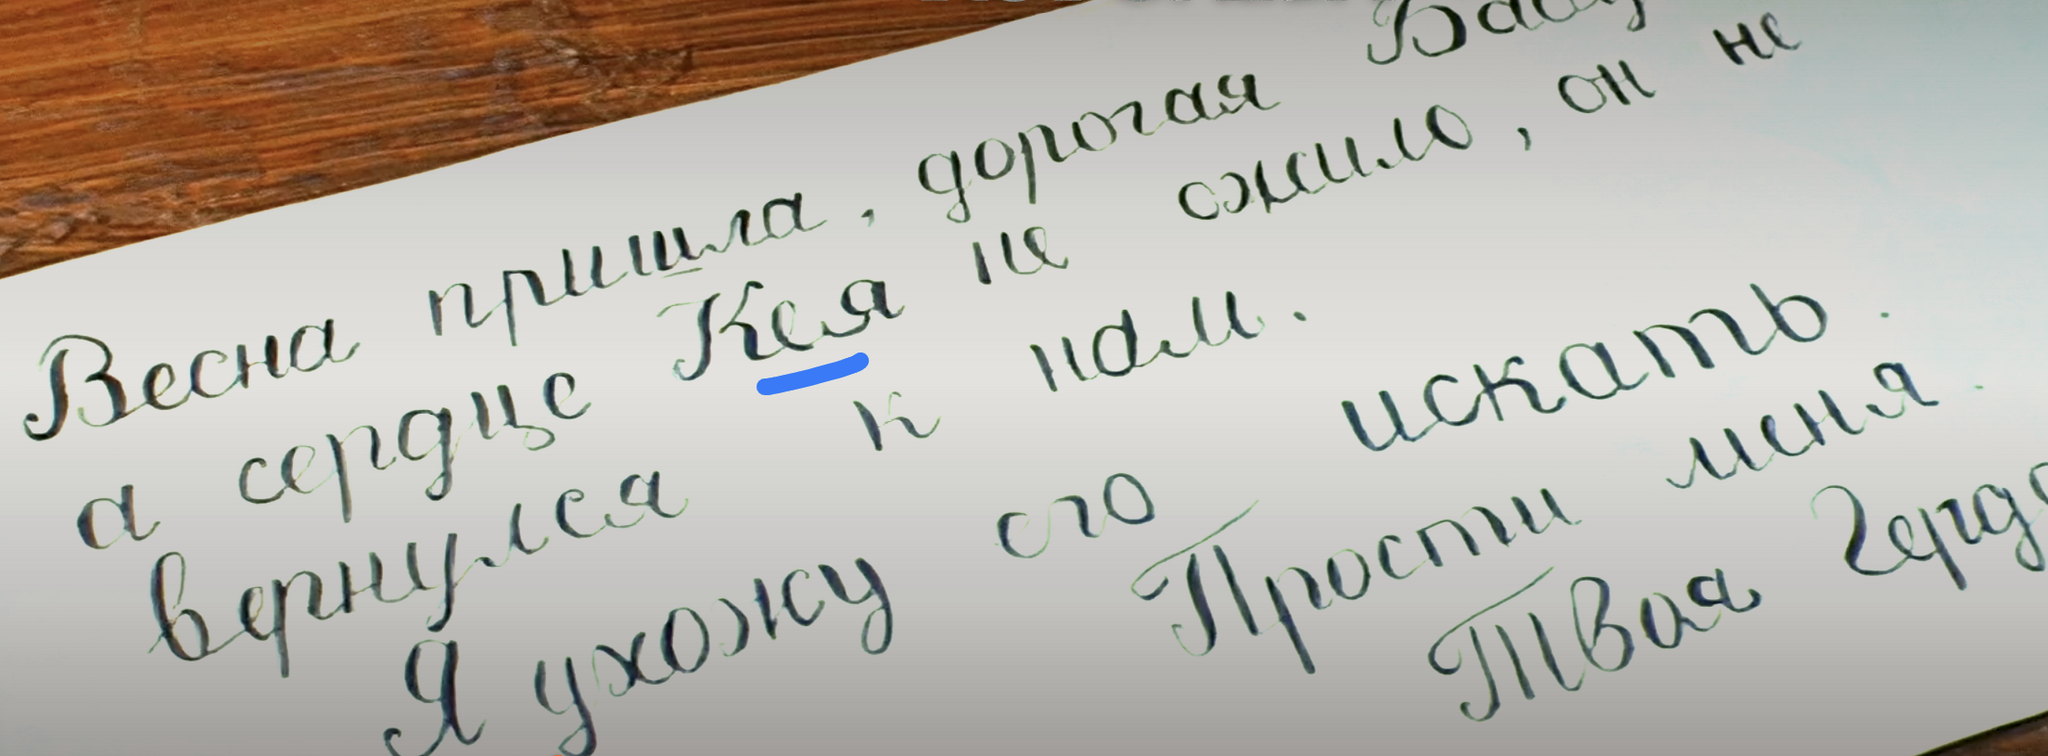 Весна пришла, дорогая
а сердце Кея не ожило, он не
вернулся к нам.
Я ухожу его искать.
Прости меня.
Твоя Герда